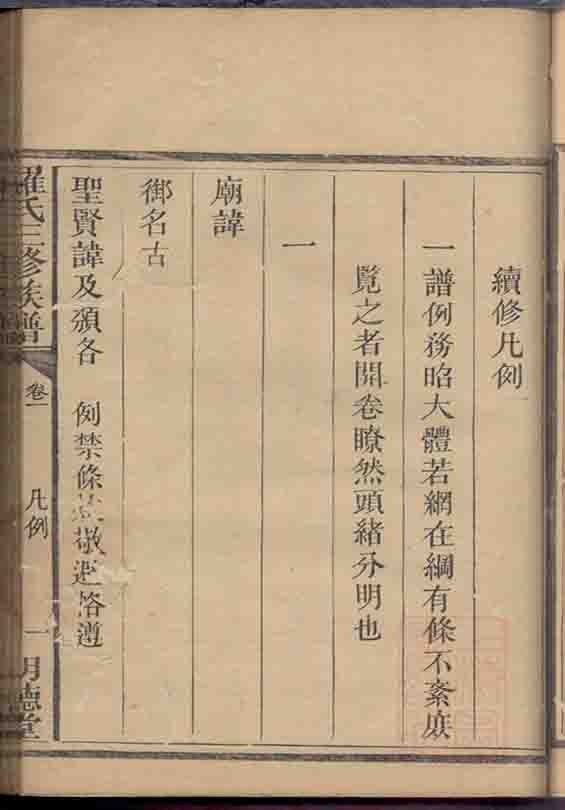 續修凡例
一譜例務昭大體若網在綱有條不紊庶
覧之者開卷瞭然頭緒分明也
一
廟諱
御名古
聖賢諱及頒各 例禁條敬避恪遵
羅氏三修族譜
卷一
凡例
一
明德堂